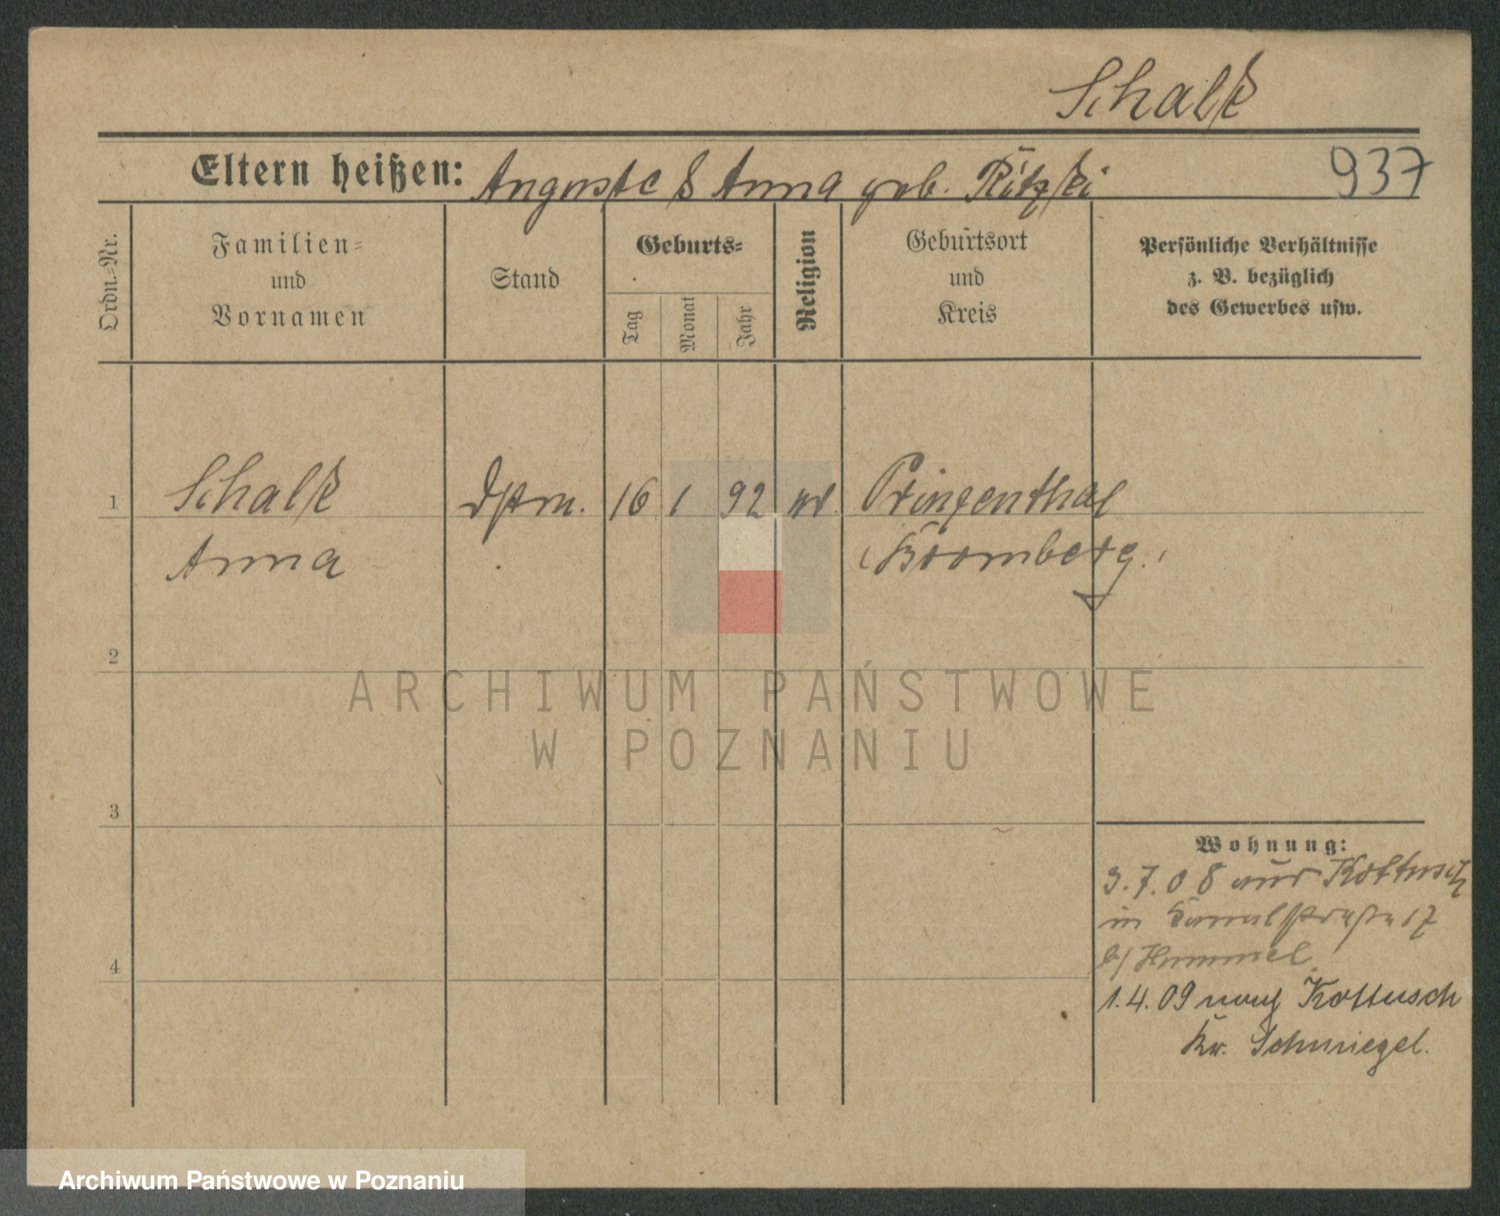 Schalk
Eltern heißen: Auguste & Anna geb. Ritzki
937
Ordn.-Nr.
Familien-
und
Vornamen
Stand
Geburts-
Tag
Monat
Jahr
Religion
Geburtsort
und
Kreis
Persönliche Verhältnisse
z. B. bezüglich
des Gewerbes usw.
1 Schalk Dstm. 16 1 92 ev. Prinzenthal
Anna (Bromberg.)
2
3
4
Wohnung:
3.7.08 aus Kottusch
in Kanalstraße 17
b/ Hummel
1.4.09 nach Kottusch
Kr. Schmiegel.
ARCHIWUM PAŃSTWOWE
W POZNANIU
Archiwum Państwowe w Poznaniu